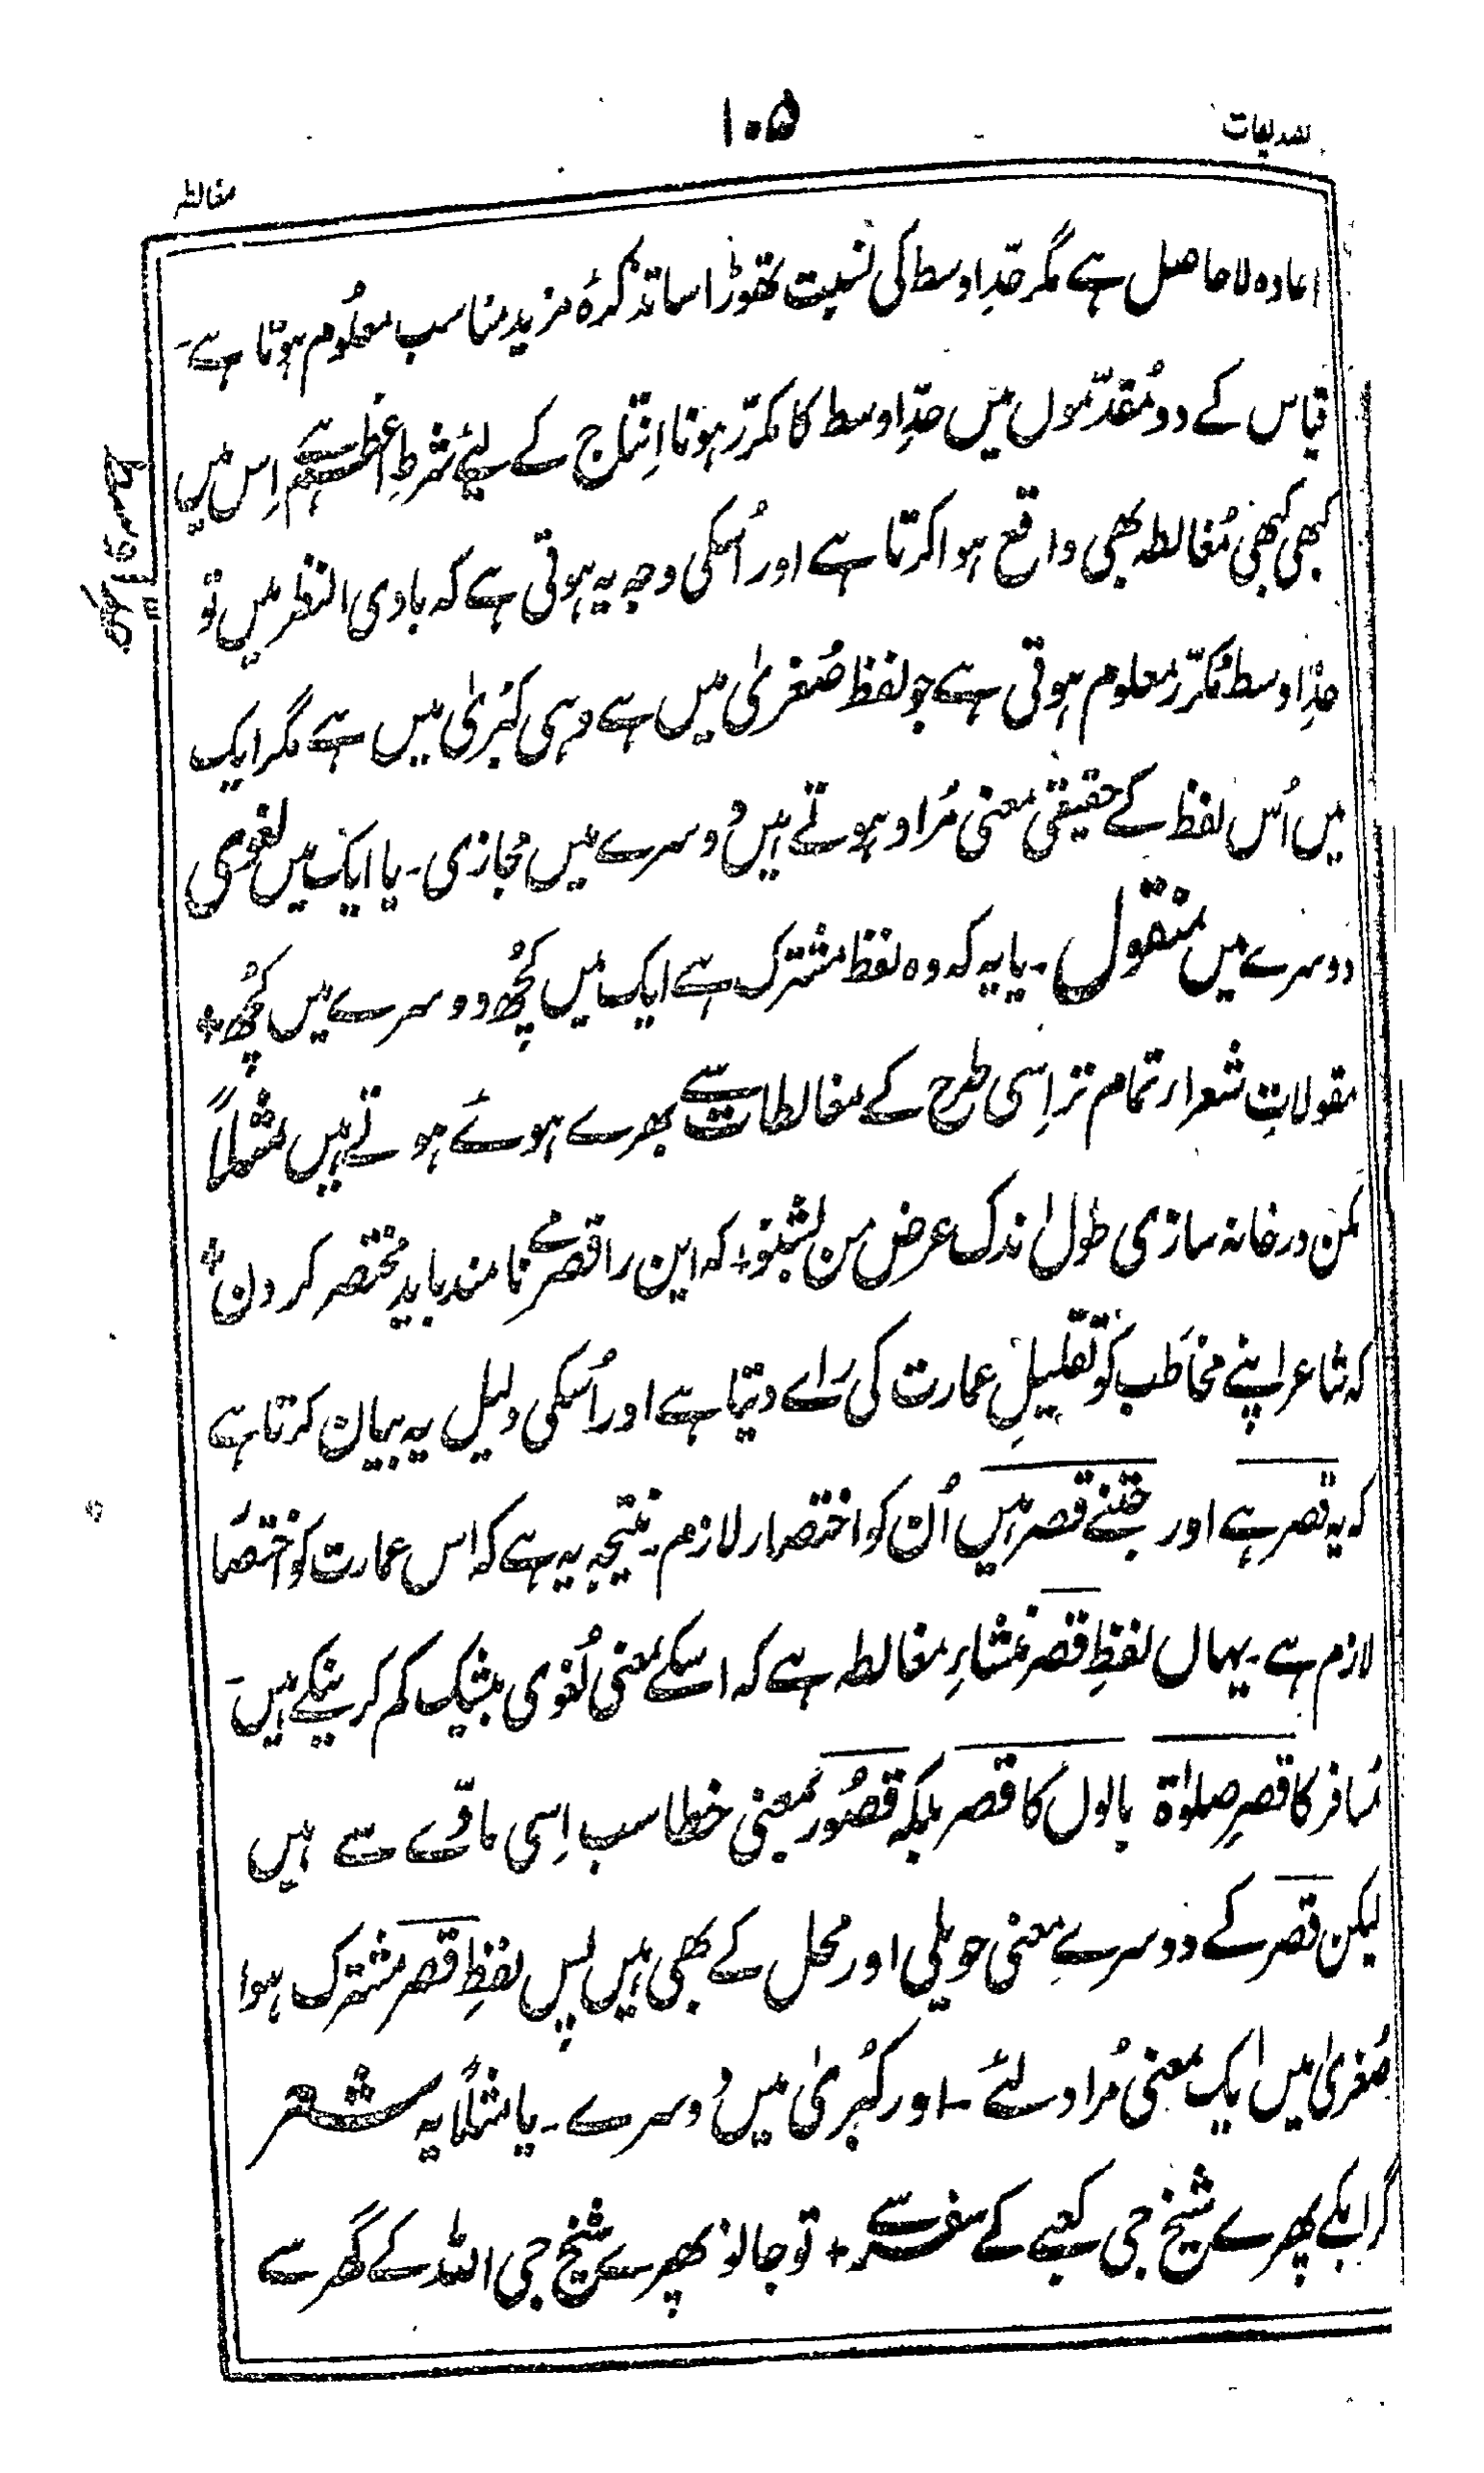 ۱۰۵
مغالطہ
اعادہ لا حاصل ہے مگر حدِّ اوسط کی نسبت تھوڑا سا تذکرۂ مزید مناسب معلُوم ہوتا ہے۔
قیاس کے دو مُقدّموں میں حدِّ اوسط کا مکرّر ہونا اِنتاج کے لیئے شرطِ اعظم ہے اِس میں
کبھی کبھی مُغالطہ بھی واقع ہوا کرتا ہے اور اُسکی وجہ یہ ہوتی ہے کہ بادی النظر میں تو
حدِّ اوسط مُکرّر معلوم ہوتی ہے جو لفظ صُغریٰ میں ہے وہی کبُریٰ میں ہے مگر ایک
میں اُس لفظ کے حقیقی معنی مُراد ہوتے ہیں دُوسرے میں مجازی۔ یا ایک میں لغوی
دوسرے میں منقول۔ یا یہ کہ وہ لفظ مشترک ہے ایک میں کُچھ دوسرے میں کُچھ +
مقولاتِ شعراء تمام تر اِسی طرح کے مغالطات سے بھرے ہوئے ہوتے ہیں مثلاً
مکن در خانہ سازی طول اندک عرض من بشنو + کہ این را قصر مے نامند باید مختصر کردن +
کہ شاعر اپنے مخاطَب کو تقلیلِ عمارت کی رَاے دیتا ہے اور اُسکی دلیل یہ بیان کرتا ہے
کہ یہ قصر ہے اور جتنے قصر ہیں اُن کو اختصار لازم۔ نتیجہ یہ ہے کہ اس عمارت کو اختصا
لازم ہے۔ یہاں لفظِ قصر منشاءِ مغالطہ ہے کہ اسکے معنی لُغوی بیشک کم کرنیکے ہیں۔
مُسافر کا قصرِ صلوٰۃ بالوں کا قصر بلکہ قصُور بمعنی خطا سب اِسی مادّے سے ہیں
لیکن قصر کے دوسرے معنی حویلی اور محل کے بھی ہیں پس لفظِ قصر مشترک ہوا
صُغریٰ میں ایک معنی مُراد لئے۔ اور کبُریٰ میں دُوسرے۔ یا مثلاً یہ شعر
گر ابکے پھرے شیخ جی کعبے کے سفر سے + تو جانو پھرے شیخ جی اللہ کے گھر سے